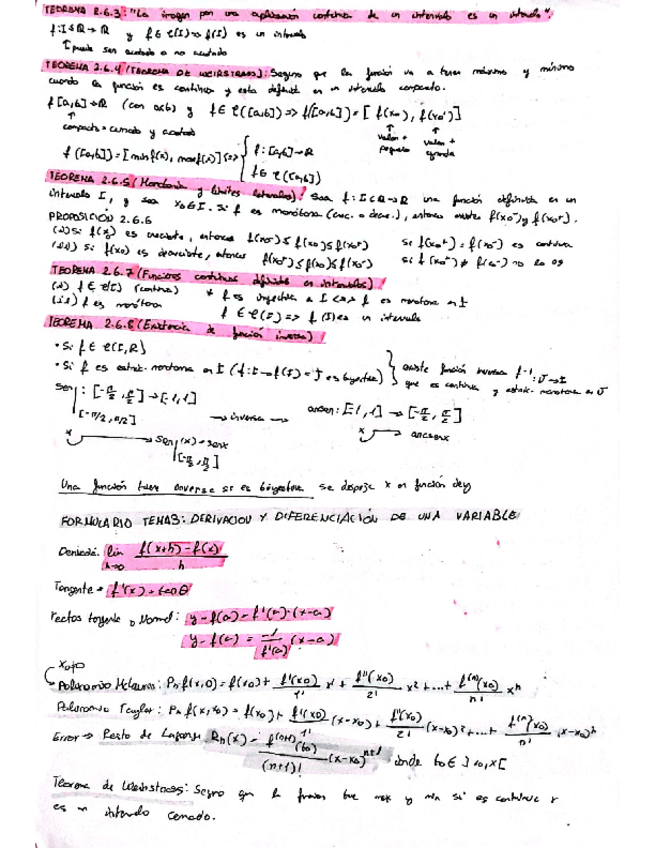 TEOREMA 2.6.3: "La imagen por una aplicación continua de un intervalo es un intervalo".
f: I⊆ℝ→ℝ y f∈C(I)⇒f(I) es un intervalo
↑ puede ser acotado o no acotado
TEOREMA 2.6.4 (TEOREMA DE WEIRSTRASS): Seguro que la función va a tener máximo y mínimo
cuando la función es continua y esta definida en un intervalo compacto.
f[a,b]→ℝ (con a≤b) y f∈C([a,b])=> f([a,b])=[f(x₀), f(x₀')]
↑ compacto = cerrado y acotado
↑ valor + pequeño ↑ valor + grande
f([a,b])=[minf(x), maxf(x)] <=> { f:[a,b]→ℝ
f∈C([a,b])
TEOREMA 2.6.5 (Monotonía y límites laterales): Sea f: I⊂ℝ→ℝ una función definida en un
intervalo I, y sea x₀∈I. Si f es monótona (crec. o decre.), entonces existe f(x₀⁻) y f(x₀⁺).
PROPOSICIÓN 2.6.6
(i) Si f(x₀) es creciente, entonces f(x₀⁻)≤f(x₀)≤f(x₀⁺) Si f(x₀⁺)=f(x₀⁻) es continua
(ii) Si f(x₀) es decreciente, entonces f(x₀⁺)≤f(x₀)≤f(x₀⁻) si f(x₀⁺)≠f(x₀⁻) no lo es
TEOREMA 2.6.7 (Funciones continuas definidas en intervalos)
(i) f∈C(I) (continua) * f es inyectiva a I <=> f es monotona en I
(ii) f es monótona f∈C(I)=> f(I) es un intervalo
TEOREMA 2.6.8 (Existencia de función inversa)
• Si f∈C(I,ℝ)
• Si f es estrict. monotona en I (f: I→f(I)=J es biyectiva) } existe función inversa f⁻¹: J→I
que es continua y estrict. monotona en J
Sen|[-π/2,π/2] : [-π/2, π/2]→[-1,1] → inversa → arcsen: [-1,1]→[-π/2, π/2]
x → Sen|[-π/2,π/2] (x)=senx x → arcsenx
Una función tiene inversa si es biyectiva se despeja x en función de y
FORMULARIO TEMA3: DERIVACION Y DIFERENCIACIÓN DE UNA VARIABLE
Derivada: lim h→0 (f(x+h)-f(x))/h
Tangente = f'(x)=tanθ
Rectas tangente y Normal: y-f(a)=f'(a)·(x-a)
y-f(a)= -1/f'(a) (x-a)
x₀=0
Polinomio McLaurin: Pₙf(x,0)=f(x₀)+ f'(x₀)/1! x¹ + f''(x₀)/2! x² +...+ f⁽ⁿ⁾(x₀)/n! xⁿ
Polinomio Taylor: Pₙ f(x,x₀)=f(x₀)+ f'(x₀)/1! (x-x₀)+ f''(x₀)/2! (x-x₀)²+...+ f⁽ⁿ⁾(x₀)/n! (x-x₀)ⁿ
Error → Resto de Lagrange Rₙ(x)= f⁽ⁿ⁺¹⁾(t₀)/(n+1)! (x-x₀)ⁿ⁺¹ donde t₀∈]x₀,x[
Teorema de Weirstrass: Seguro que la función tiene max y min si es continua y
es un intervalo cerrado.